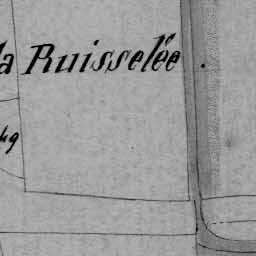 la Ruisselée